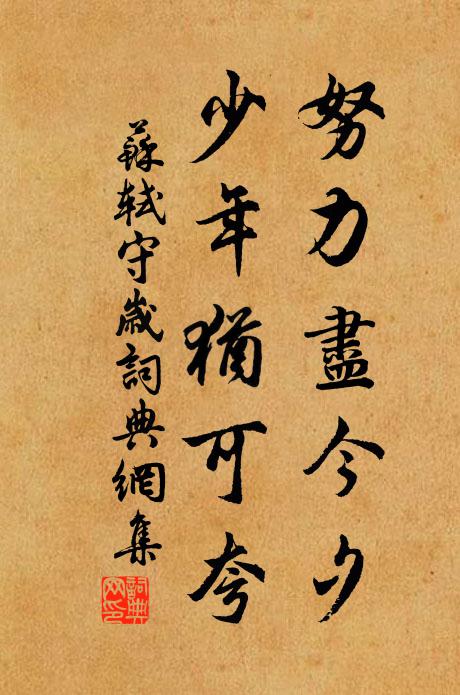 努力盡今夕
少年猶可夸
蘇軾守歲詞典網集
詞典网印